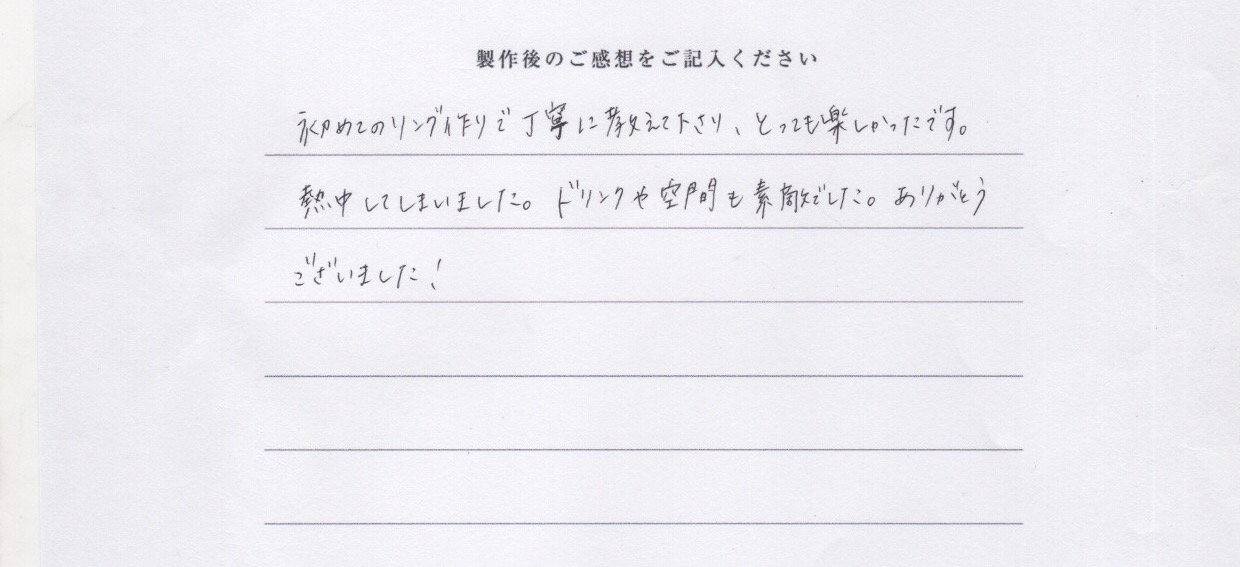 製作後のご感想をご記入ください
初めてのリング作りで丁寧に教えて下さり、とっても楽しかったです。
熱中してしまいました。ドリンクや空間も素敵でした。ありがとう
ございました!